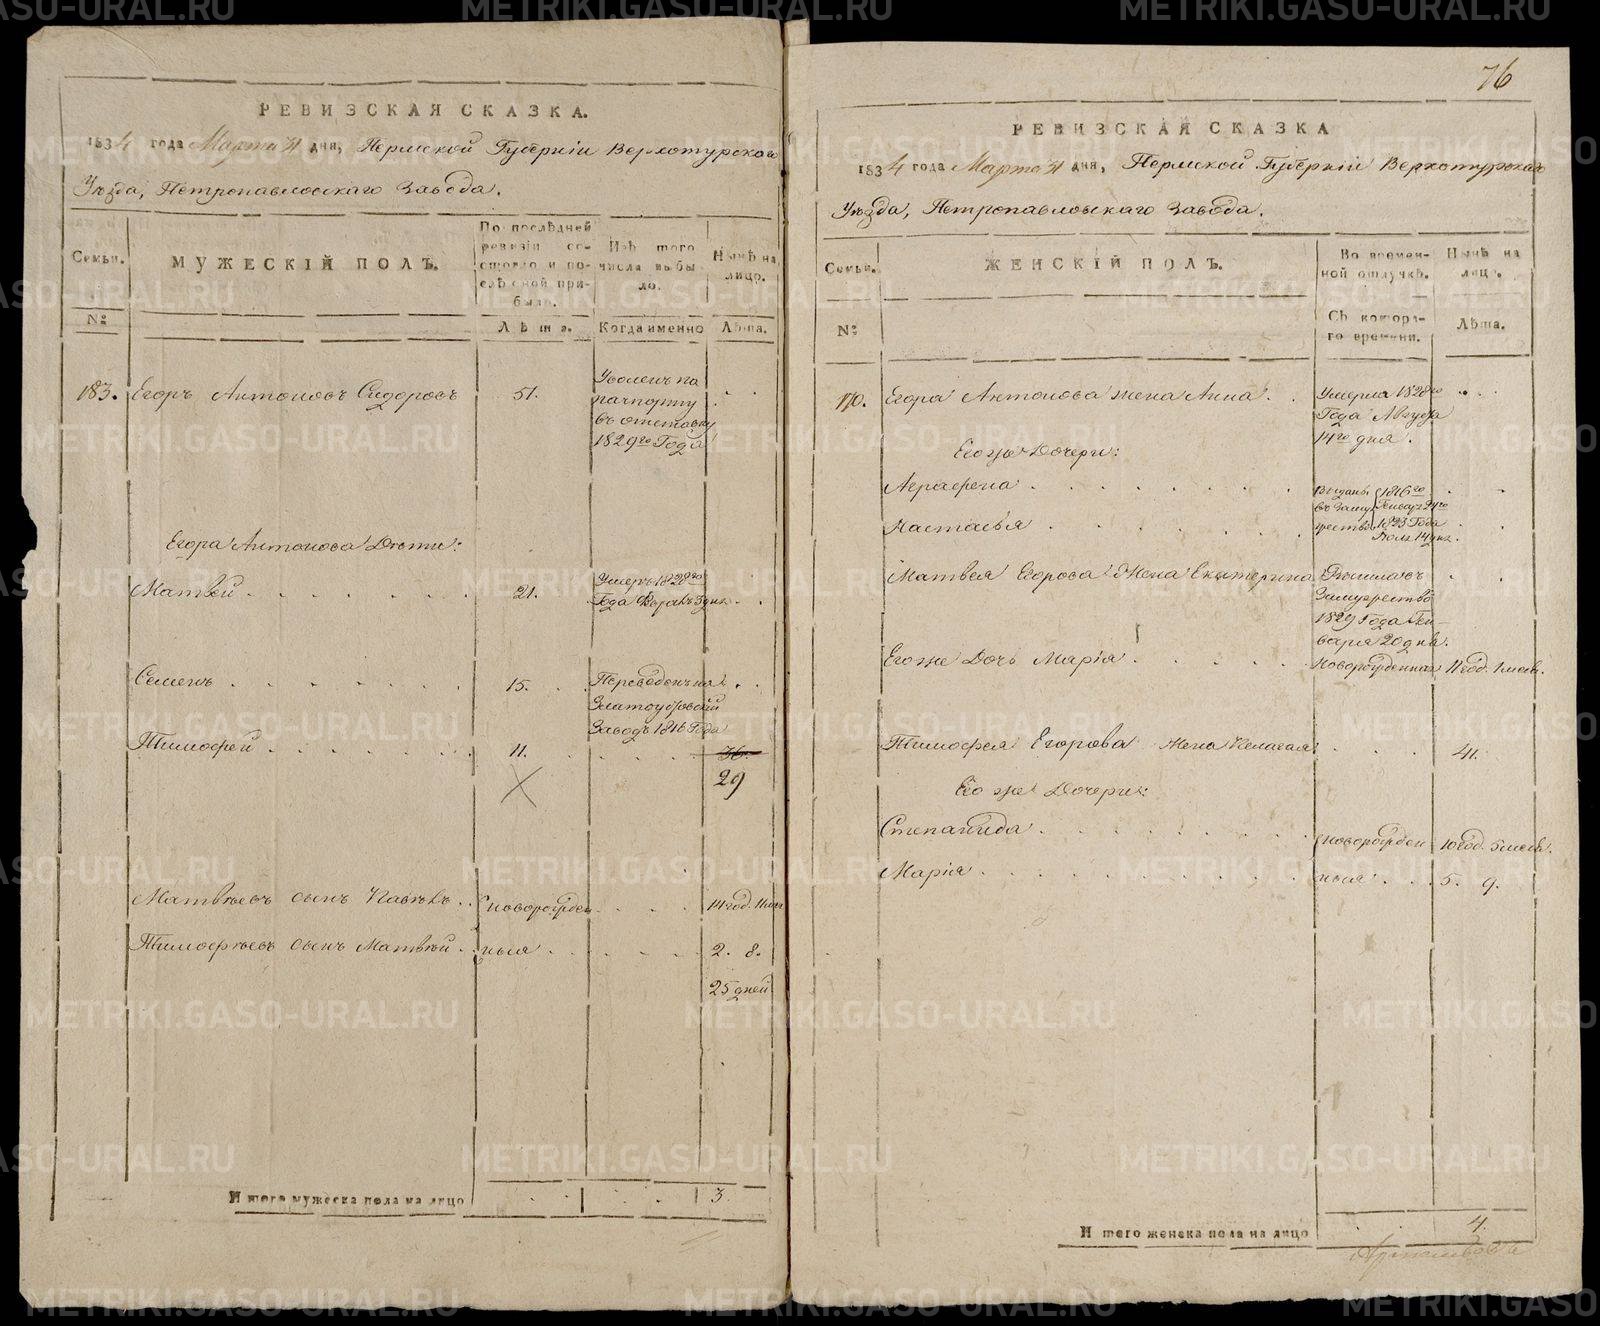 РЕВИЗСКАЯ СКАЗКА.
1834 года Марта 31 дня, Пермской Губерніи Верхотурскаго
Уѣзда, Петропавловскаго Завода.
Семьи.
МУЖЕСКІЙ ПОЛЪ.
По послѣдней ревизіи состояло и послѣ оной прибыло.
Изъ того числа выбыло.
Нынѣ на лицо.
№
Лѣта.
Когда именно
Лѣта.
183. Егоръ Антоновъ Сидоровъ 51.
Уволенъ по
пачпорту
въ отставку
1829го Года
Егора Антонова Дѣти:
Матвей 21.
Умеръ 1828го
Года
Семенъ 15.
Переведенъ на
Златоустовскій
Заводъ 1816 Года
Тимофей 11. 36.
29
Матвѣевъ сынъ 14 год.
Новорожден
Тимофѣевъ сынъ Матвѣй ныя 2. 8.
25 дней
И того мужеска пола на лицо 3.
76
РЕВИЗСКАЯ СКАЗКА
1834 года Марта 31 дня, Пермской Губерніи Верхотурскаго
Уѣзда, Петропавловскаго Завода.
Семьи.
ЖЕНСКІЙ ПОЛЪ.
Во временной отлучкѣ.
Нынѣ на лицо.
№
Съ котораго времени.
Лѣта.
170. Егора Антонова жена Анна
Умерла 1828го
Года Августа
14го дня.
Его же Дочери:
Аграфена
Настасья
Выданы
въ заму
жество
1816го
Генвар 24го
1823 Года
14 дня.
Матвея Егорова Жена Екатерина
Вышла въ
Замужество
1829 Года Ген-
варя 20 дня.
Его же Дочь Марія Новорожденная 11 год. 1 месяц.
Тимофея Егорова жена Пелагея 41.
Его же Дочери:
Степанида Новорожден 10 год. 5 месяц.
Марія ныя 5. 9.
И того женска пола на лицо 4.
METRIKI.GASO-URAL.RU